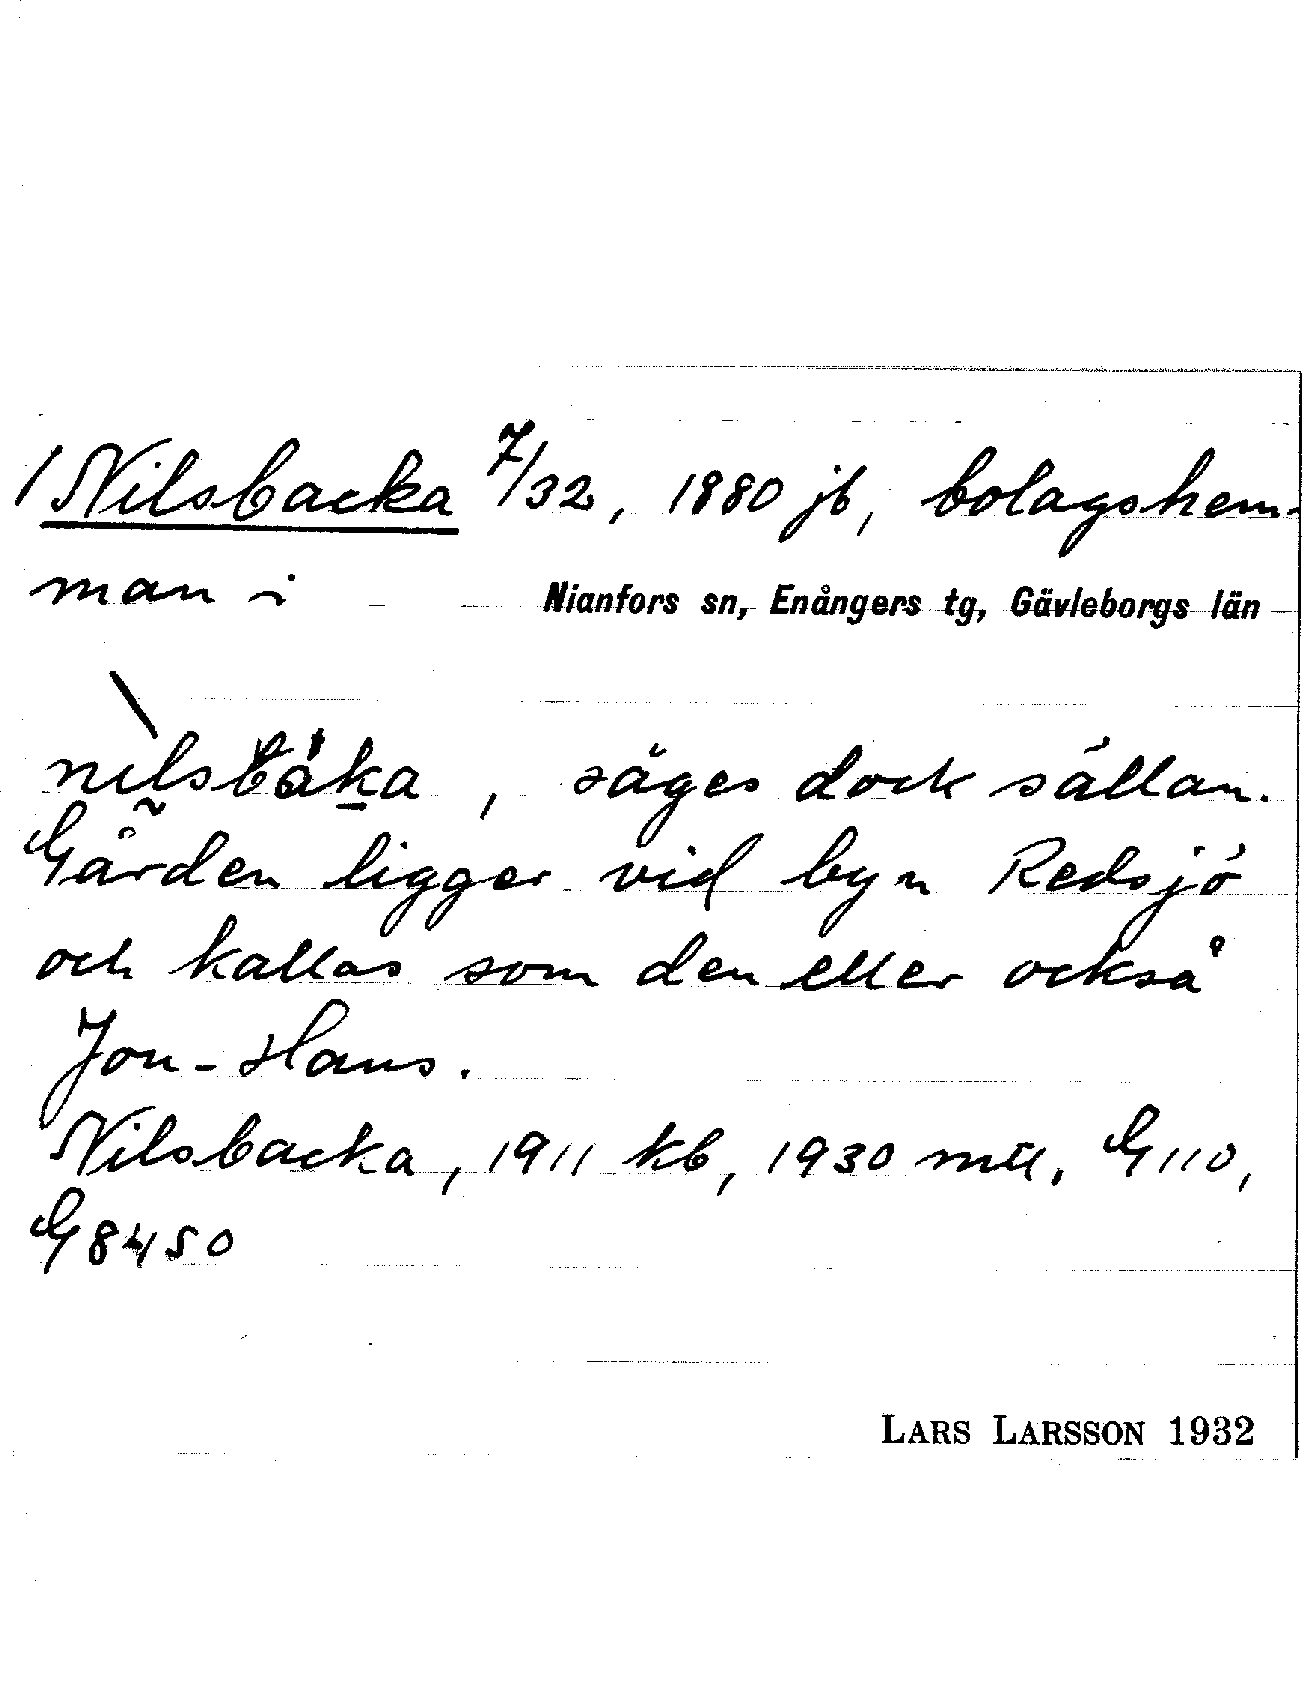 / Nilsbacka 7/32, 1880 jb, bolagshem-
man i Nianfors sn, Enångers tg, Gävleborgs län
säges dock sällan.
Gården ligger vid byn Redsjö
och kallas som den eller också
Jon-Hans.
Nilsbacka, 1911 kb, 1930 mtl. G110,
G8450
LARS LARSSON 1932